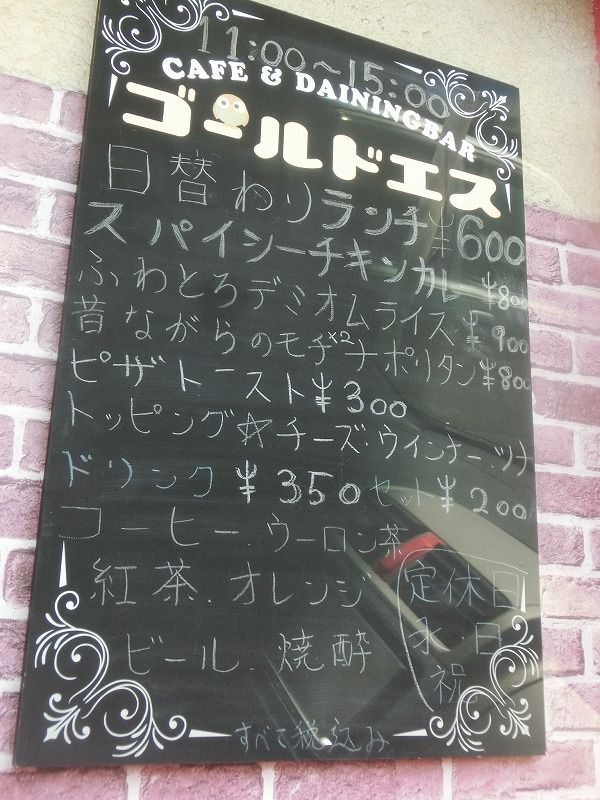 11:00~15:00
CAFE & DAININGBAR
ゴールドエス
日替わりランチ¥600
スパイシーチキンカレー ¥800
ふわとろデミオムライス ¥900
昔ながらのモチ×2ナポリタン¥800
ピザトースト¥300
トッピング☆チーズ.ウインナー.ツナ
ドリンク ¥350 セット¥200
コーヒー.ウーロン茶
紅茶.オレンジ
ビール.焼酎
定休日
水日
祝
すべて税込み